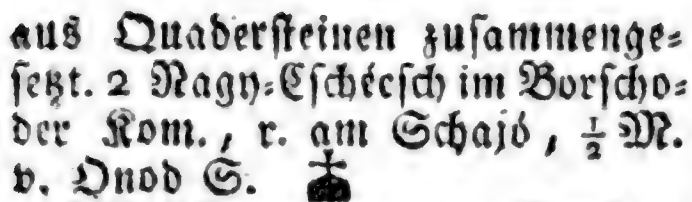 aus Quadersteinen zusammenge⸗
setzt. 2 Nagy⸗Cschécsch im Borscho⸗
der Kom., r. am Schajó, ½ M.
v. Onod S.